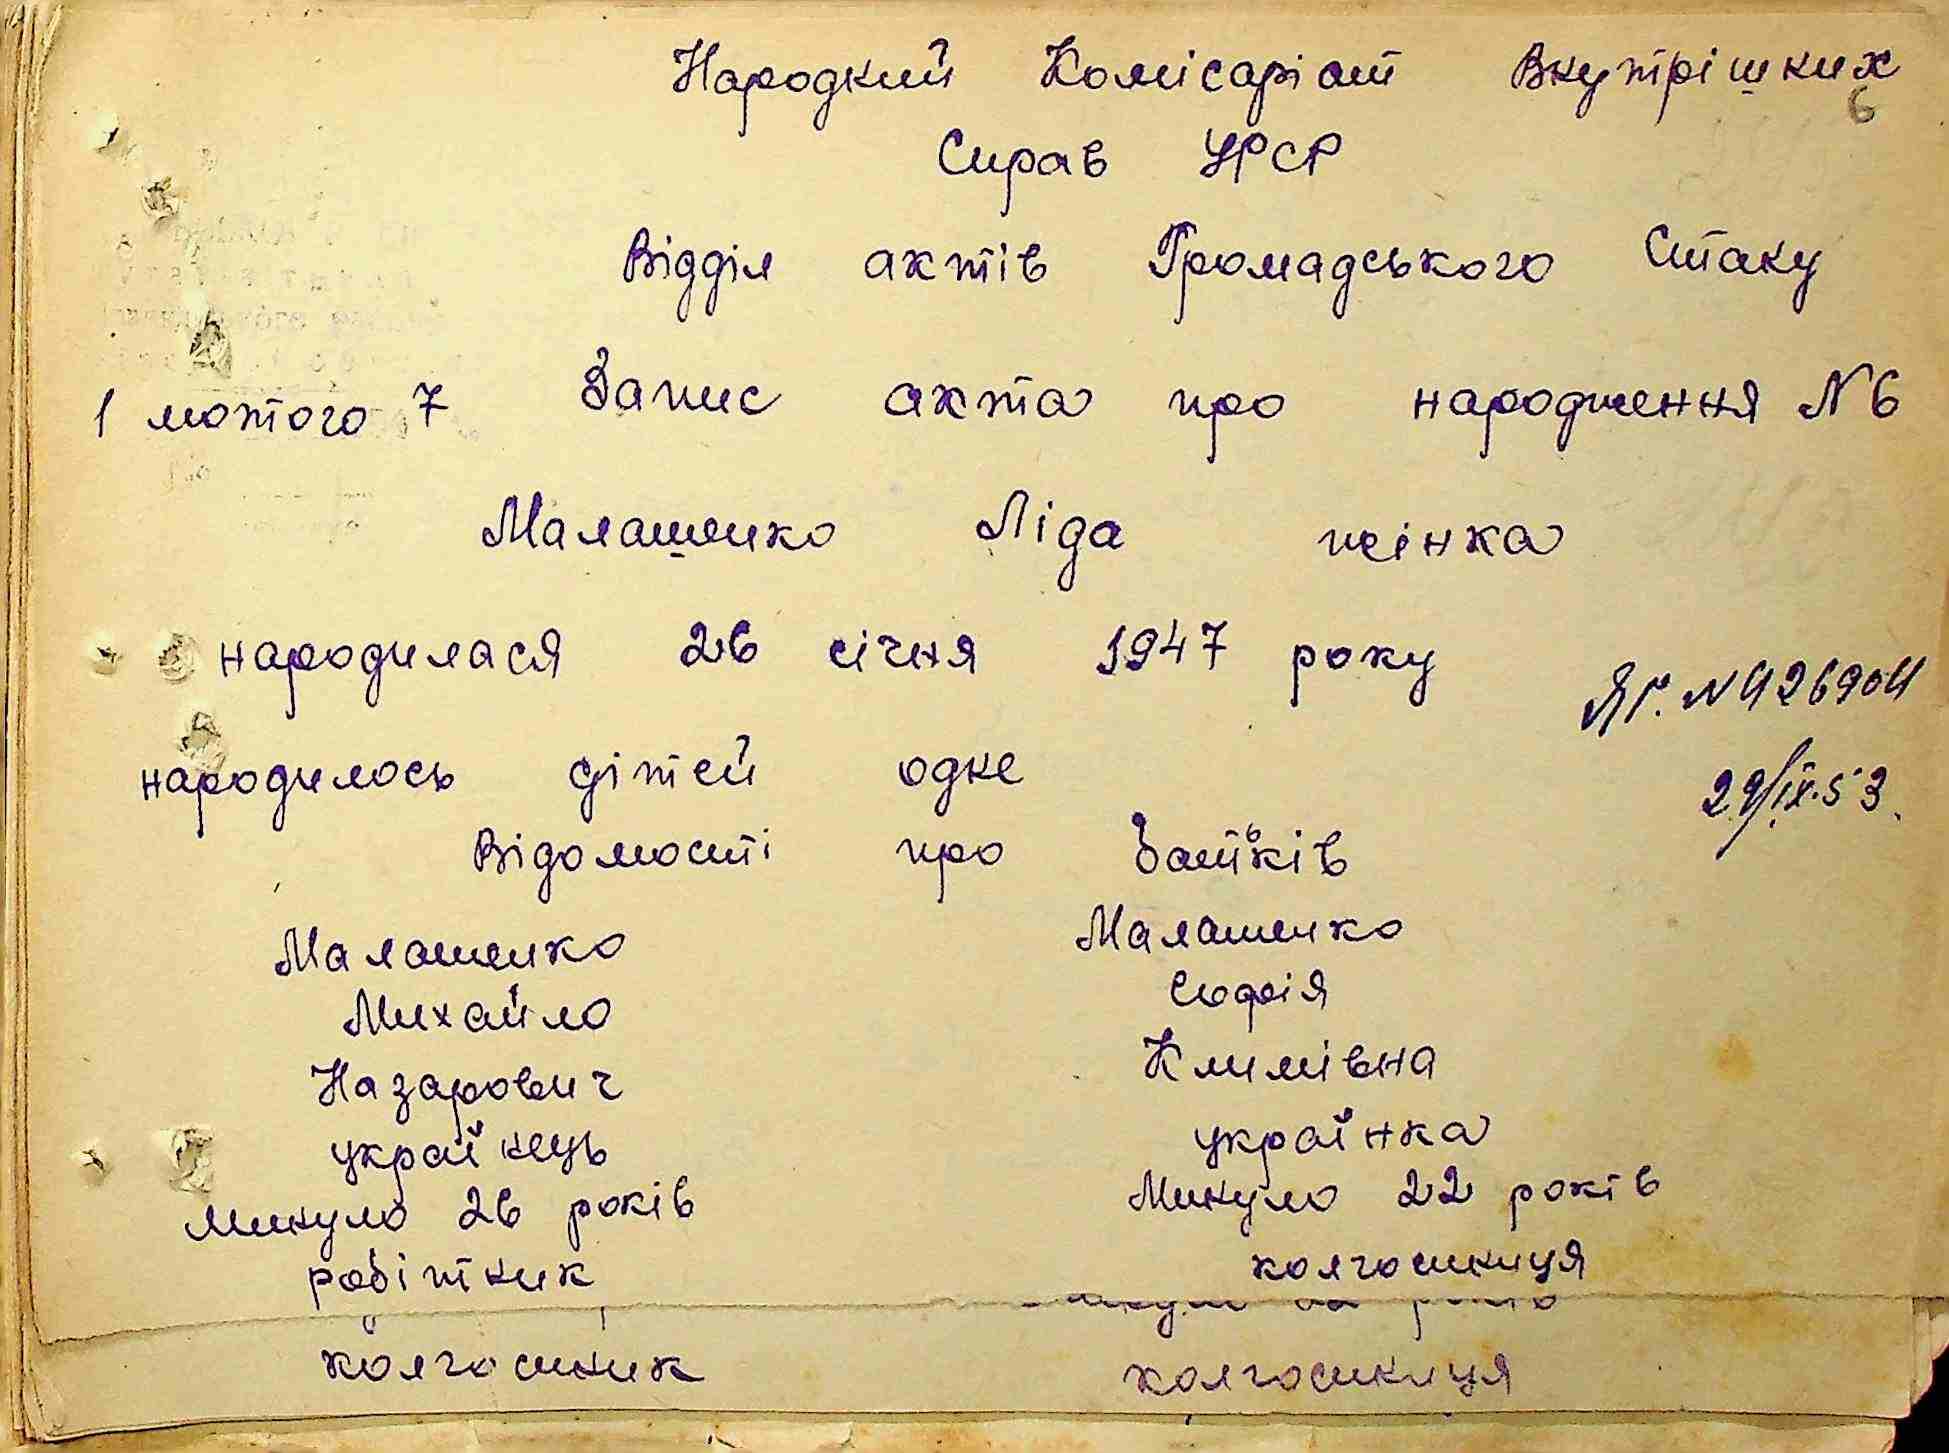 Народний Комісаріат Внутрішних
6
Справ УРСР
Відділ актів Громадського Стану
1 лютого 7 Запис акта про народження N 6
Малашенко Ліда жінка
народилася 26 січня 1947 року
ЯГ. N 426904
народилось дітей одне
29/IX.53.
Відомості про батьків
Малашенко Малашенко
Михайло Софія
Назарович Климівна
українець українка
Минуло 26 років Минуло 22 років
робітник колгоспниця
років
колгоспник колгоспниця